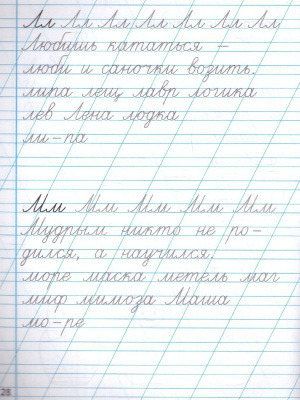 Лл Лл Лл Лл Лл Лл Лл
Любишь кататься –
люби и саночки возить.
липа лещ лавр логика
лев Лена лодка
ли-па
Мм Мм Мм Мм Мм
Мудрым никто не ро-
дился, а научился.
море маска метель маг
миф мимоза Маша
мо-ре
28